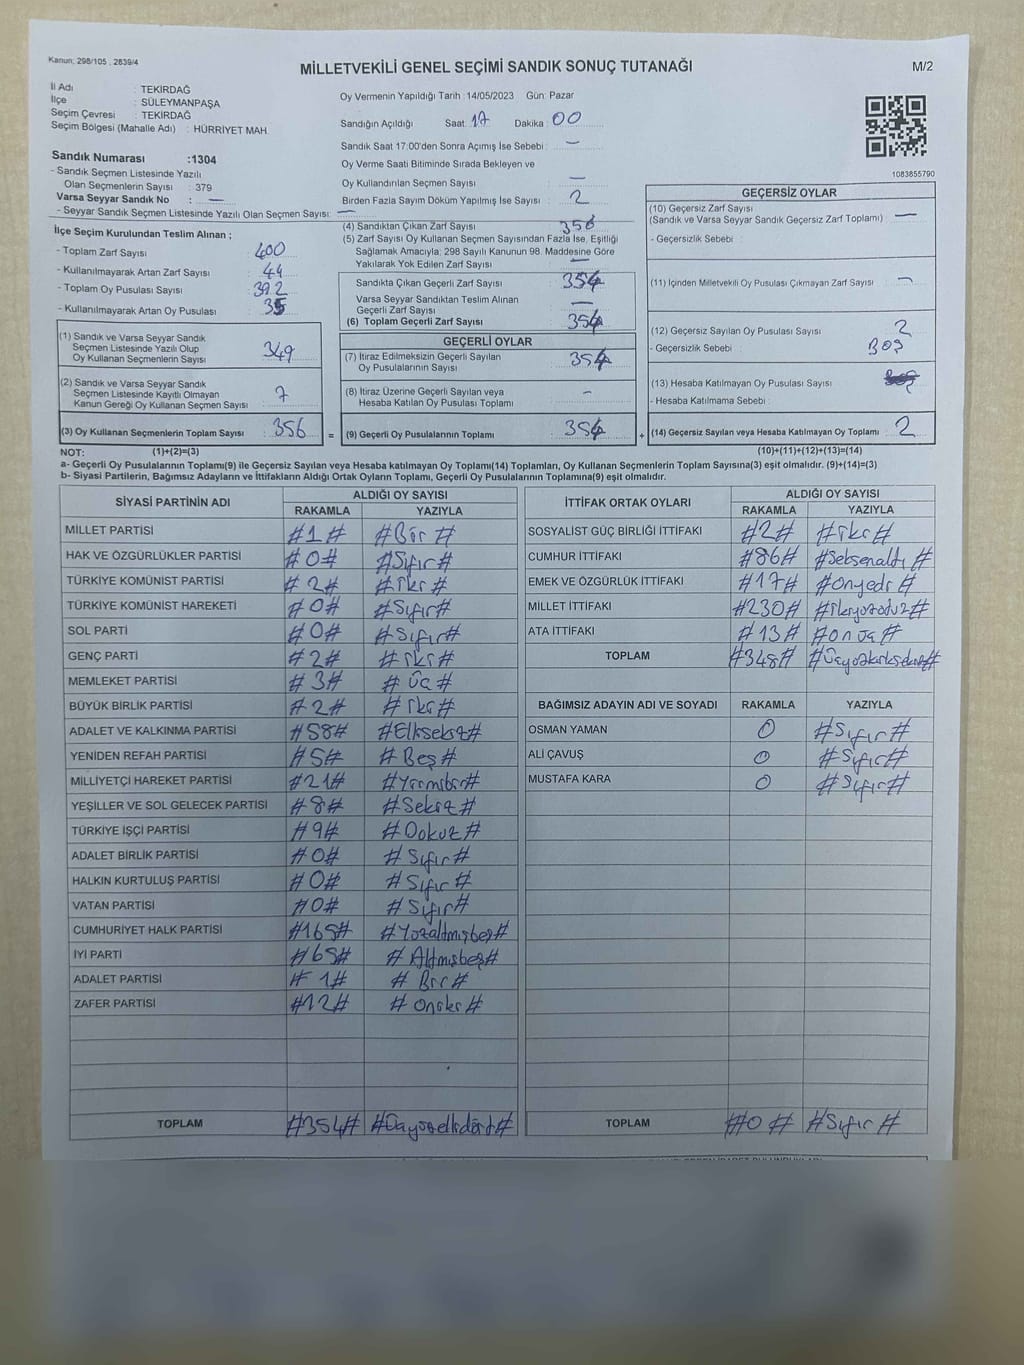 Kanun; 298/105 , 2839/4
MİLLETVEKİLİ GENEL SEÇİMİ SANDIK SONUÇ TUTANAĞI
M/2
İl Adı : TEKİRDAĞ
İlçe : SÜLEYMANPAŞA
Seçim Çevresi : TEKİRDAĞ
Seçim Bölgesi (Mahalle Adı) : HÜRRİYET MAH.
Sandık Numarası :1304
- Sandık Seçmen Listesinde Yazılı
Olan Seçmenlerin Sayısı : 379
Varsa Seyyar Sandık No : —
- Seyyar Sandık Seçmen Listesinde Yazılı Olan Seçmen Sayısı: —
İlçe Seçim Kurulundan Teslim Alınan ;
- Toplam Zarf Sayısı 400
- Kullanılmayarak Artan Zarf Sayısı 44
- Toplam Oy Pusulası Sayısı 392
- Kullanılmayarak Artan Oy Pusulası 35
(1) Sandık ve Varsa Seyyar Sandık
Seçmen Listesinde Yazılı Olup
Oy Kullanan Seçmenlerin Sayısı 349
(2) Sandık ve Varsa Seyyar Sandık
Seçmen Listesinde Kayıtlı Olmayan
Kanun Gereği Oy Kullanan Seçmen Sayısı 7
(3) Oy Kullanan Seçmenlerin Toplam Sayısı : 356 =
Oy Vermenin Yapıldığı Tarih : 14/05/2023 Gün: Pazar
Sandığın Açıldığı Saat: 17 Dakika: 00
Sandık Saat 17:00'den Sonra Açımış İse Sebebi : —
Oy Verme Saati Bitiminde Sırada Bekleyen ve
Oy Kullandırılan Seçmen Sayısı —
Birden Fazla Sayım Döküm Yapılmış İse Sayısı : 2
(4) Sandıktan Çıkan Zarf Sayısı : 356
(5) Zarf Sayısı Oy Kullanan Seçmen Sayısından Fazla İse, Eşitliği
Sağlamak Amacıyla; 298 Sayılı Kanunun 98. Maddesine Göre
Yakılarak Yok Edilen Zarf Sayısı —
Sandıkta Çıkan Geçerli Zarf Sayısı : 354
Varsa Seyyar Sandıktan Teslim Alınan
Geçerli Zarf Sayısı : —
(6) Toplam Geçerli Zarf Sayısı : 354
GEÇERLİ OYLAR
(7) İtiraz Edilmeksizin Geçerli Sayılan
Oy Pusulalarının Sayısı : 354
(8) İtiraz Üzerine Geçerli Sayılan veya
Hesaba Katılan Oy Pusulası Toplamı : -
(9) Geçerli Oy Pusulalarının Toplamı : 354 +
1083855790
GEÇERSİZ OYLAR
(10) Geçersiz Zarf Sayısı
(Sandık ve Varsa Seyyar Sandık Geçersiz Zarf Toplamı) : —
- Geçersizlik Sebebi :
(11) İçinden Milletvekili Oy Pusulası Çıkmayan Zarf Sayısı : -
(12) Geçersiz Sayılan Oy Pusulası Sayısı : 2
- Geçersizlik Sebebi : Boş
(13) Hesaba Katılmayan Oy Pusulası Sayısı :
- Hesaba Katılmama Sebebi :
(14) Geçersiz Sayılan veya Hesaba Katılmayan Oy Toplamı : 2
NOT: (1)+(2)=(3) (10)+(11)+(12)+(13)=(14)
a- Geçerli Oy Pusulalarının Toplamı(9) ile Geçersiz Sayılan veya Hesaba katılmayan Oy Toplamı(14) Toplamları, Oy Kullanan Seçmenlerin Toplam Sayısına(3) eşit olmalıdır. (9)+(14)=(3)
b- Siyasi Partilerin, Bağımsız Adayların ve İttifakların Aldığı Ortak Oyların Toplamı, Geçerli Oy Pusulalarının Toplamına(9) eşit olmalıdır.
SİYASİ PARTİNİN ADI ALDIĞI OY SAYISI
RAKAMLA YAZIYLA
MİLLET PARTİSİ #1# #Bir#
HAK VE ÖZGÜRLÜKLER PARTİSİ #0# #Sıfır#
TÜRKİYE KOMÜNİST PARTİSİ #2# #iki#
TÜRKİYE KOMÜNİST HAREKETİ #0# #Sıfır#
SOL PARTİ #0# #Sıfır#
GENÇ PARTİ #2# #iki#
MEMLEKET PARTİSİ #3# #Üç#
BÜYÜK BİRLİK PARTİSİ #2# #iki#
ADALET VE KALKINMA PARTİSİ #58# #Ellisekiz#
YENİDEN REFAH PARTİSİ #5# #Beş#
MİLLİYETÇİ HAREKET PARTİSİ #21# #Yirmibir#
YEŞİLLER VE SOL GELECEK PARTİSİ #8# #Sekiz#
TÜRKİYE İŞÇİ PARTİSİ #9# #Dokuz#
ADALET BİRLİK PARTİSİ #0# #Sıfır#
HALKIN KURTULUŞ PARTİSİ #0# #Sıfır#
VATAN PARTİSİ #0# #Sıfır#
CUMHURİYET HALK PARTİSİ #165# #Yüzaltmışbeş#
İYİ PARTİ #65# #Altmışbeş#
ADALET PARTİSİ #1# #Bir#
ZAFER PARTİSİ #12# #Oniki#
TOPLAM #354# #Üçyüzellidört#
İTTİFAK ORTAK OYLARI ALDIĞI OY SAYISI
RAKAMLA YAZIYLA
SOSYALİST GÜÇ BİRLİĞİ İTTİFAKI #2# #iki#
CUMHUR İTTİFAKI #86# #Seksenaltı#
EMEK VE ÖZGÜRLÜK İTTİFAKI #17# #Onyedi#
MİLLET İTTİFAKI #230# #ikiyüzotuz#
ATA İTTİFAKI #13# #Onüç#
TOPLAM #348# #Üçyüzkırksekiz#
BAĞIMSIZ ADAYIN ADI VE SOYADI RAKAMLA YAZIYLA
OSMAN YAMAN 0 #Sıfır#
ALİ ÇAVUŞ 0 #Sıfır#
MUSTAFA KARA 0 #Sıfır#
TOPLAM #0# #Sıfır#